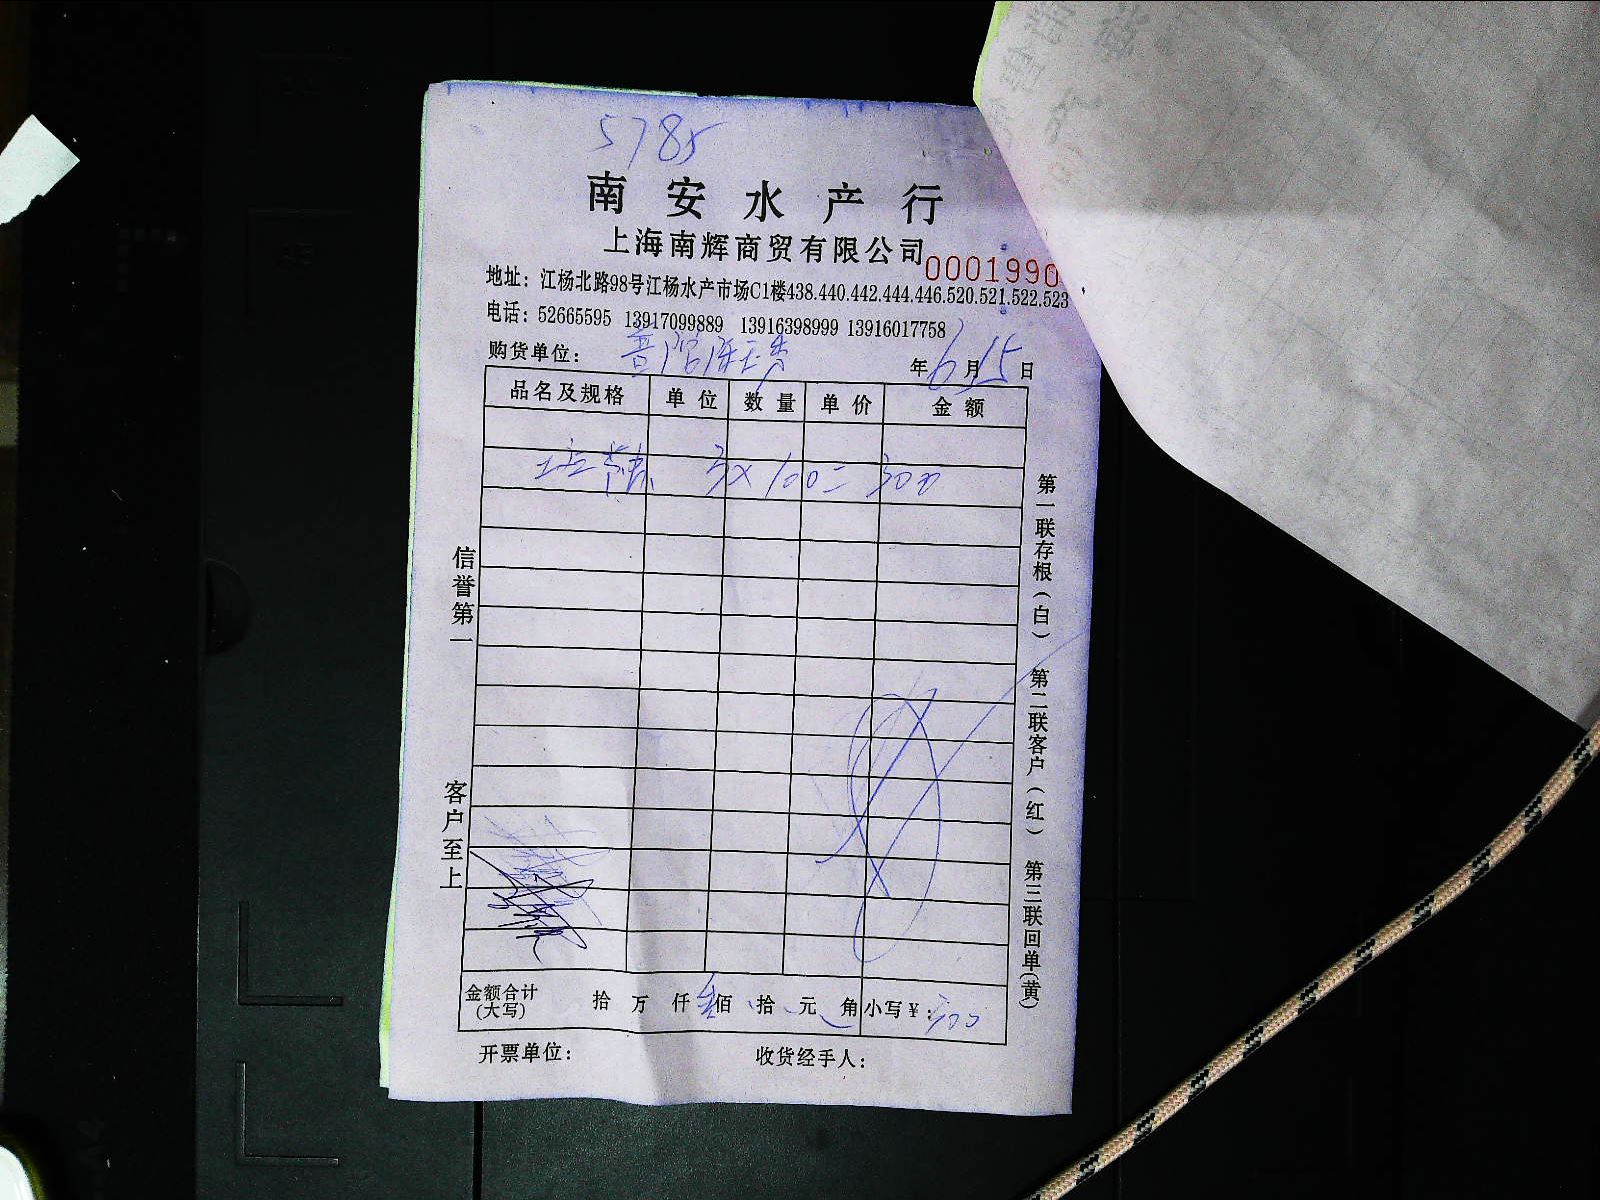 5785
南安水产行
上海南辉商贸有限公司
0001990
地址：江杨北路98号江杨水产市场C1楼438.440.442.444.446.520.521.522.523
电话：52665595 13917099889 13916398999 13916017758
购货单位：
年6月15日
品名及规格 单位 数量 单价 金额
3×100=300
信誉第一
客户至上
第一联存根（白） 第二联客户（红） 第三联回单（黄）
金额合计（大写） 拾 万 仟 叁佰 拾 元 角 小写¥：300
开票单位： 收货经手人：